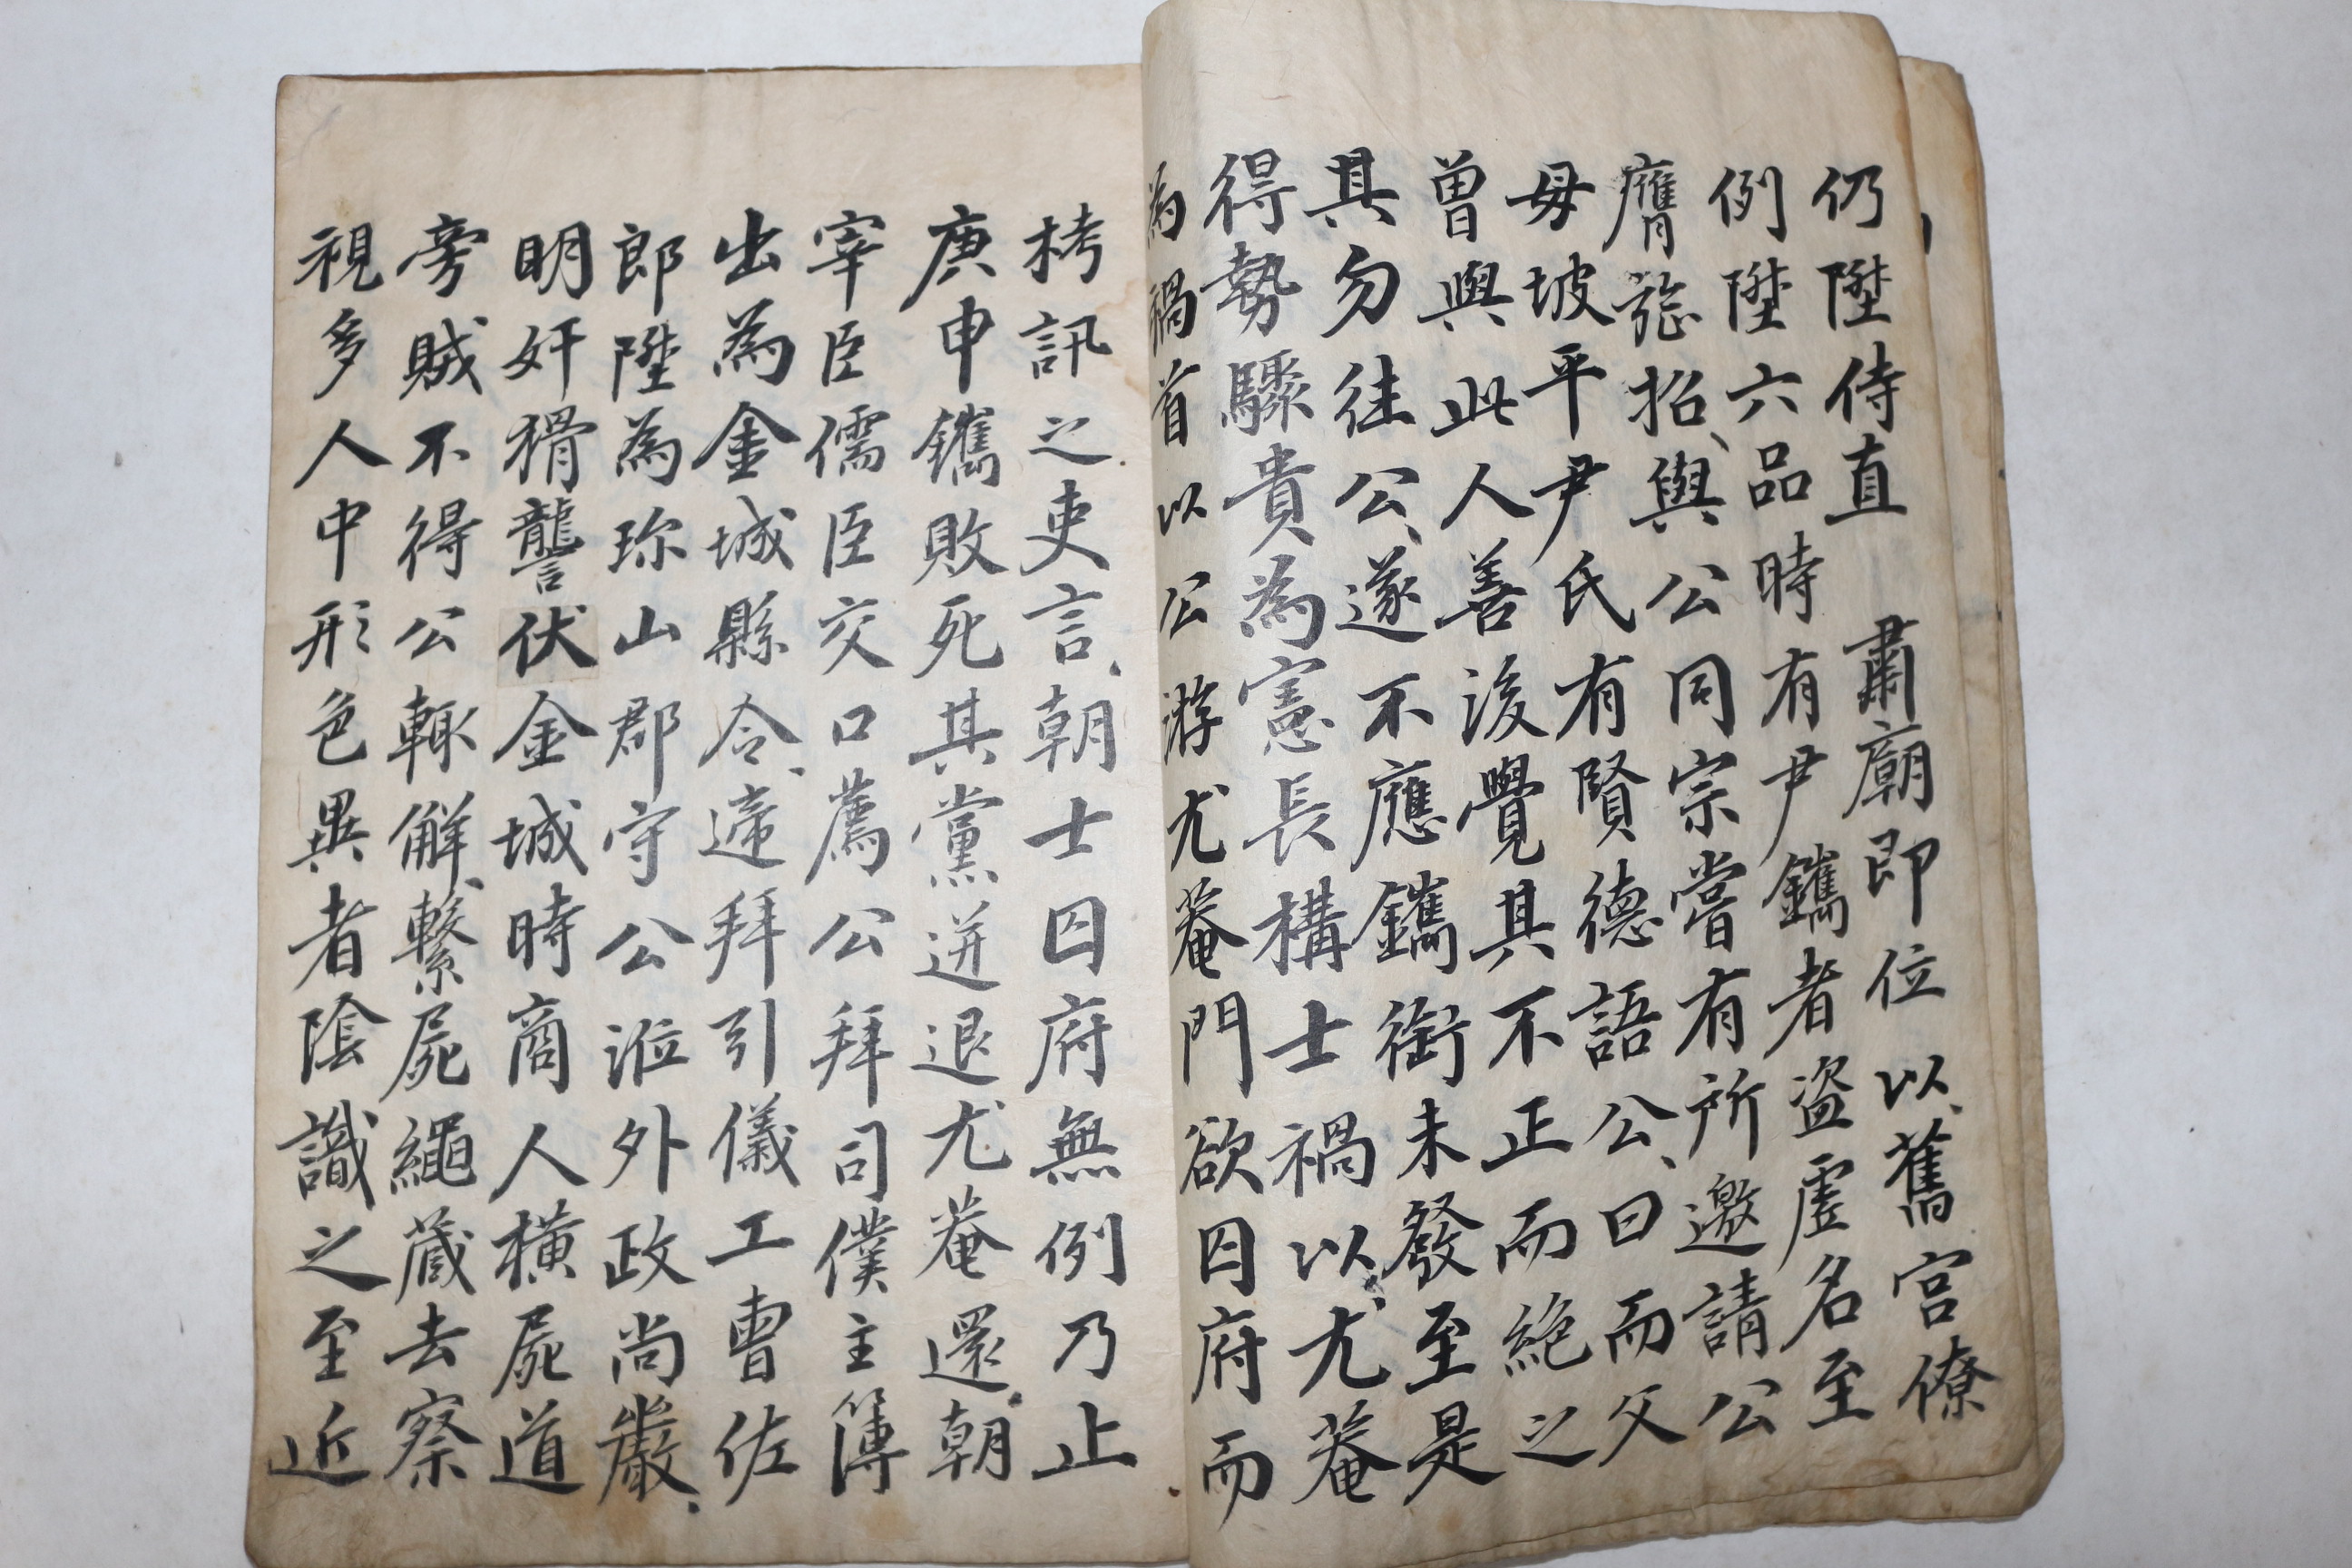 仍陞侍直　肅廟即位　以舊宮僚
例陞六品時有尹鑴者盜虛名至
膺旌招與公同宗嘗有所邀請公
母坡平尹氏有賢德語公曰而父
曾與此人善後覺其不正而絶之
其勿往公遂不應鑴銜未發至是
得勢驟貴為憲長構士禍以尤菴
為禍首以公游尤菴門欲囚府而
栲訊之吏言朝士囚府無例乃止
庚申鑴敗死其黨迸退尤菴還朝
宰臣儒臣交口薦公拜司僕主簿
出為金城縣令遞拜引儀工曹佐
郎陞為珍山郡守公涖外政尚嚴
明奸猾讋伏金城時商人橫屍道
旁賊不得公輒解繫屍繩藏去察
視多人中形色異者陰識之至近